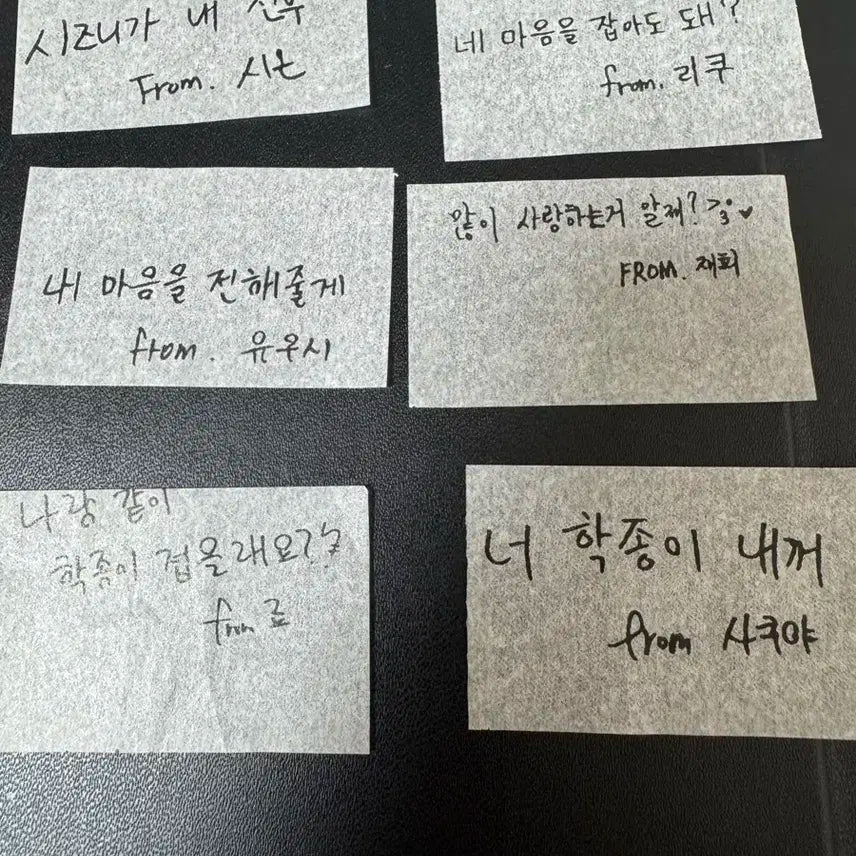 시즈니가 내 전부
From. 시온
네 마음을 잡아도 돼?
from. 리쿠
내 마음을 전해줄게
from. 유우시
많이 사랑하는거 알제? >3• ♥
FROM. 재희
나랑 같이
학종이 접을래요??
from 료
너 학종이 내꺼
from 사쿠야